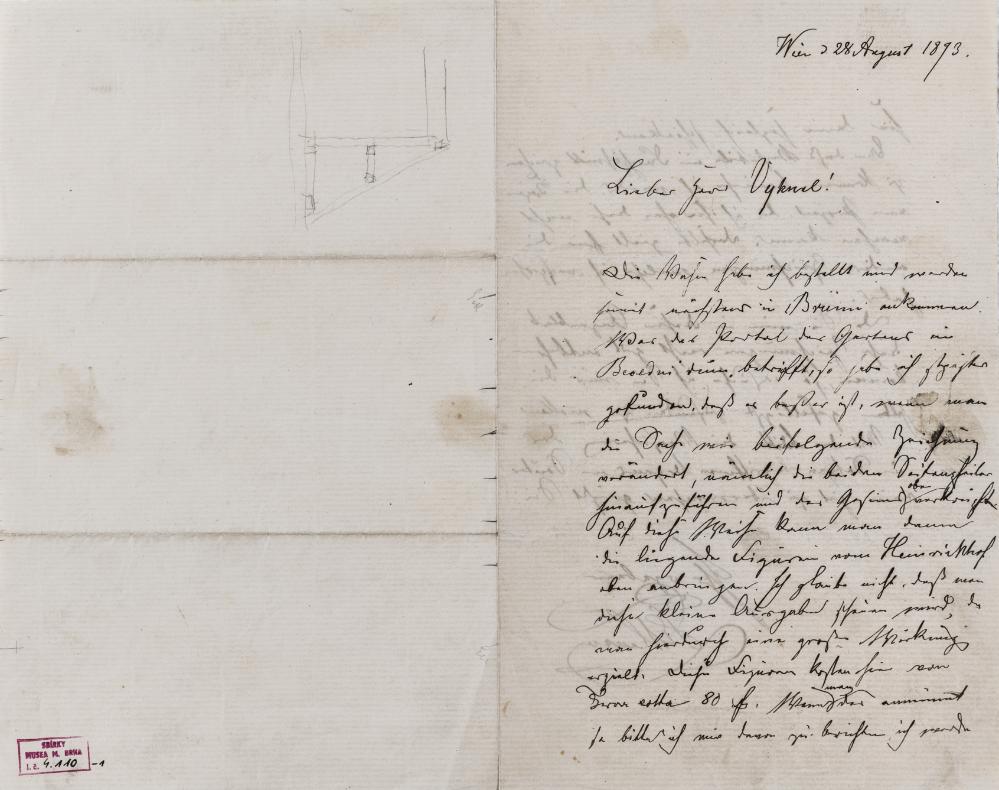 Wien d 28 August 1893.
Lieber Herr Vyhnal!
Die Vasen habe ich bestellt und werden
somit nächstens in Brünn ankommen.
Was das Portal des Gartens im
betrifft, so habe ich später
gefunden, daß es besser ist, wenn man
die Sache wie beifolgende Zeichnung
verändert, nämlich die beiden Seitenpfeiler
hinaufzuführen und das Gesims oben verkröpft.
Auf diese Weise kann man dann
die liegende Figuren vom Heinrichhof
oben anbringen. Ich glaube nicht, daß man
diese kleine Ausgabe scheuen wird, da
man hierdurch eine große Wirkung
erzielt. Diese Figuren kosten hier von
Terra cotta 80 fl. Wenn man das annimmt
so bitte ich mir davon zu berichten, ich werde
SBÍRKY
MUSEA M. BRNA
I. č. 4.110 -1